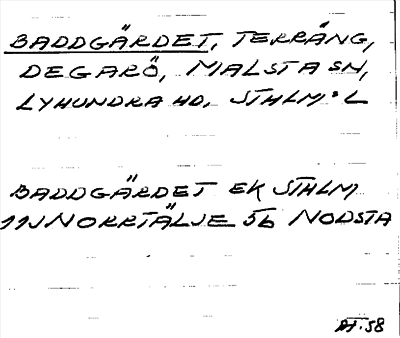 BADDGÄRDET, TERRÄNG,
DEGARÖ, MALSTA SN,
LYHUNDRA HD, STHLM:L
BADDGÄRDET EK STHLM
11J NORRTÄLJE 5b NODSTA
58